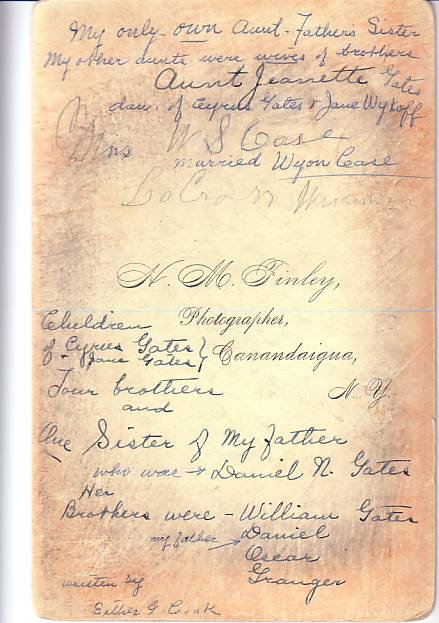 My only own Aunt - Father's Sister
My other aunts were wives of brothers
Aunt Jeanette Gates
dau. of Cyrus Gates & Jane Wykoff
Mrs W S Case
married Wyon Case
LaCross Wisconsin
N. M. Finley,
Photographer,
Canandaigua,
N. Y.
Children
of Cyrus Gates }
& Jane Gates }
Four brothers
and
One Sister of My father
who was → Daniel N. Gates
Her
Brothers were - William Gates
my father → Daniel
Oscar
Granger
written by
Esther G. Cook